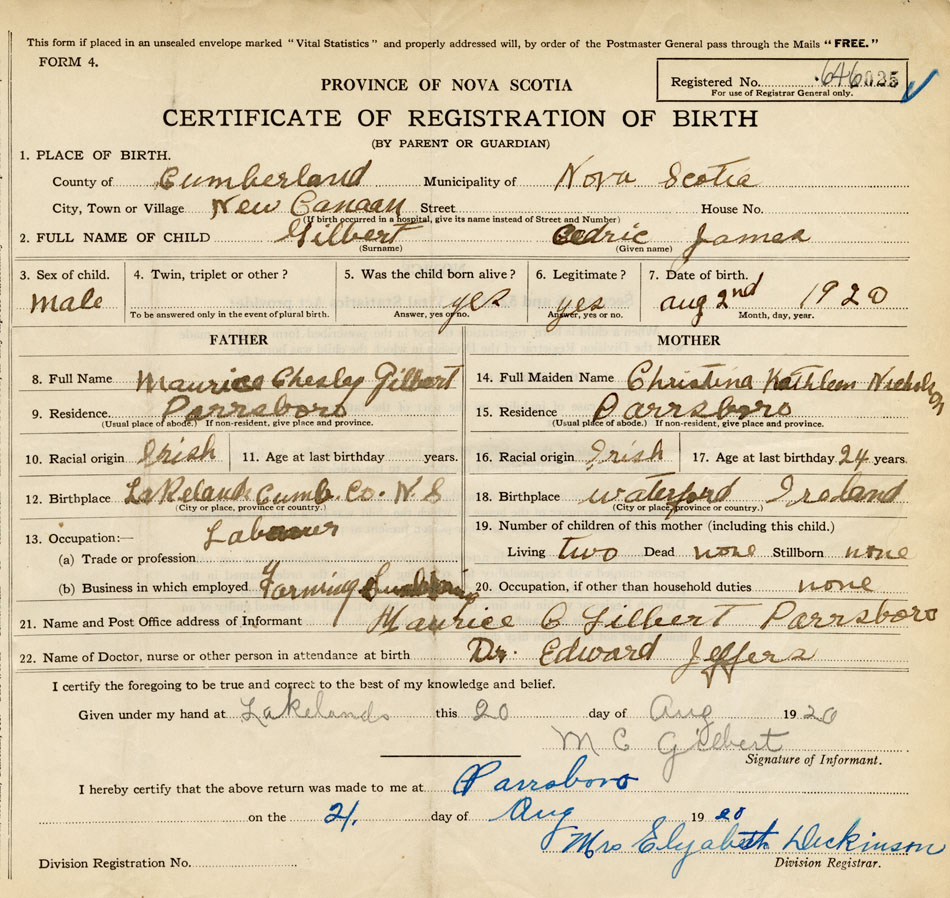 This form if placed in an unsealed envelope marked "Vital Statistics" and properly addressed will, by order of the Postmaster General pass through the Mails "FREE."
FORM 4.
Registered No. 646025
For use of Registrar General only.
PROVINCE OF NOVA SCOTIA
CERTIFICATE OF REGISTRATION OF BIRTH
(BY PARENT OR GUARDIAN)
1. PLACE OF BIRTH.
County of Cumberland Municipality of Nova Scotia
City, Town or Village New Canaan Street House No.
(If birth occurred in a hospital, give its name instead of Street and Number)
2. FULL NAME OF CHILD Gilbert Cedric James
(Surname) (Given name)
3. Sex of child. 4. Twin, triplet or other? 5. Was the child born alive? 6. Legitimate? 7. Date of birth.
Male yes yes Aug 2nd 1920
To be answered only in the event of plural birth. Answer, yes or no. Answer, yes or no. Month, day, year.
FATHER MOTHER
8. Full Name Maurice Chesley Gilbert 14. Full Maiden Name Christina Kathleen Nicholson
9. Residence. Parrsboro 15. Residence Parrsboro
(Usual place of abode.) If non-resident, give place and province. (Usual place of abode.) If non-resident, give place and province.
10. Racial origin Irish 11. Age at last birthday years. 16. Racial origin Irish 17. Age at last birthday 24 years.
12. Birthplace Lakelands Cumb. Co. N.S 18. Birthplace Waterford Ireland
(City or place, province or country.) (City or place, province or country.)
13. Occupation:— Labourer 19. Number of children of this mother (including this child.)
(a) Trade or profession Living two Dead none Stillborn none
(b) Business in which employed Farming 20. Occupation, if other than household duties none
21. Name and Post Office address of Informant Maurice C Gilbert Parrsboro
22. Name of Doctor, nurse or other person in attendance at birth Dr. Edward Jeffers
I certify the foregoing to be true and correct to the best of my knowledge and belief.
Given under my hand at Lakelands this 20 day of Aug 1920
M C Gilbert
Signature of Informant.
I hereby certify that the above return was made to me at Parrsboro
on the 21. day of Aug 1920
Mrs Elyabeth Dickinson
Division Registration No. Division Registrar.